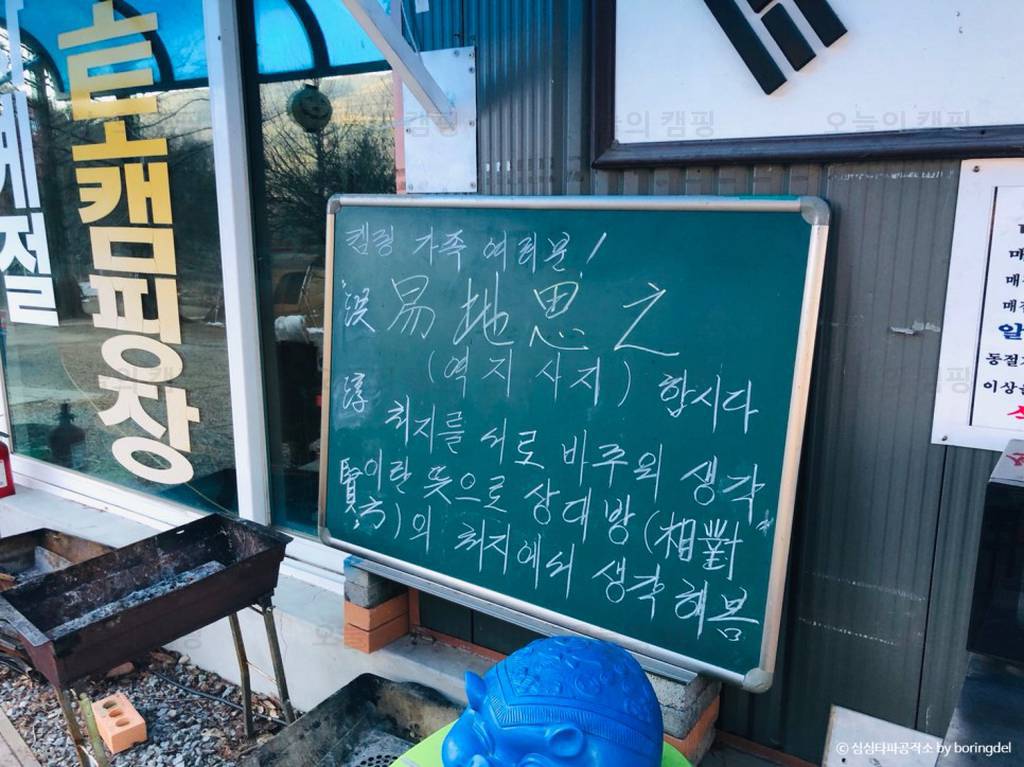 캠핑장
계절
캠핑 가족 여러분!
易地思之
(역지사지) 합시다
처지를 서로 바꾸의 생각
이란 뜻으로 상대방(相對
方)의 처지에서 생각해봄
賢
매
매
매점
알
동절기
이상
오늘의 캠핑
오늘의 캠핑
© 심심타파공작소 by boringdel